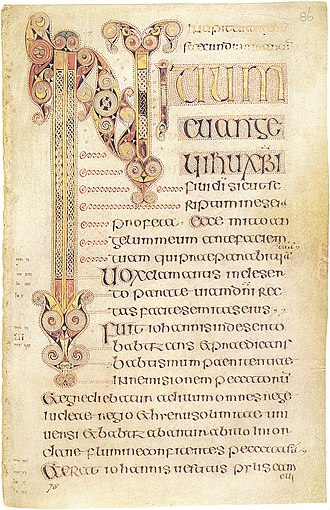 86
INITIUM
euange
lii ihu xpi
filii di sicut sc
riptum in esaia
profeta ecce mitto an
gelum meum ante faciem
tuam qui praeparabit
uox clamantis in deser
to parate uiam dni rec
tas facite semitas eius
Fuit iohannis in deserto
babtizans & praedicans
babtismum paenitentiae
in remisionem peccatorū
& egrediebatur ad illum omnes
iudeae regio & hierusolimitae uni
uersi & babtizabantur ab illo in ior
dane flumine confitentes peccata sua
& erat iohannis uestitus pylis cam
elli